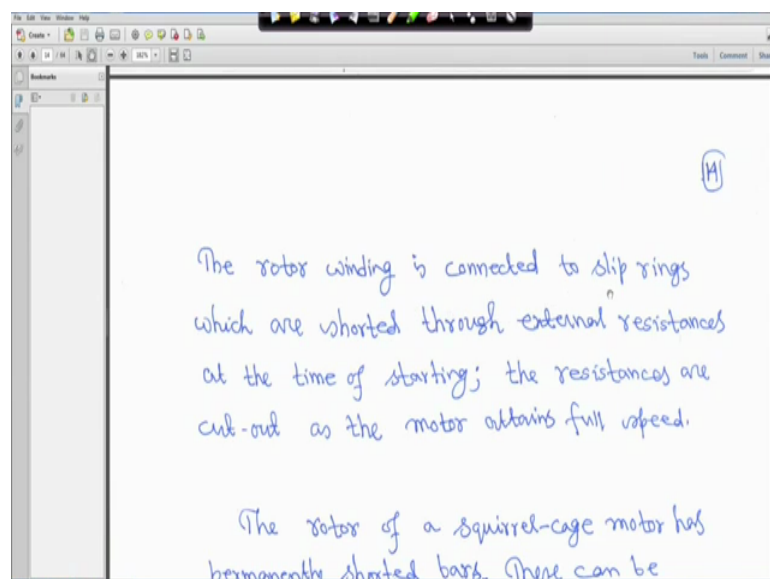 File Edit View Window Help
Create
14 / 44
182%
Tools Comment
Bookmarks
14
The rotor winding is connected to slip rings
which are shorted through external resistances
at the time of starting; the resistances are
cut-out as the motor attains full speed.
The rotor of a squirrel-cage motor has
permanently shorted bars. These can be